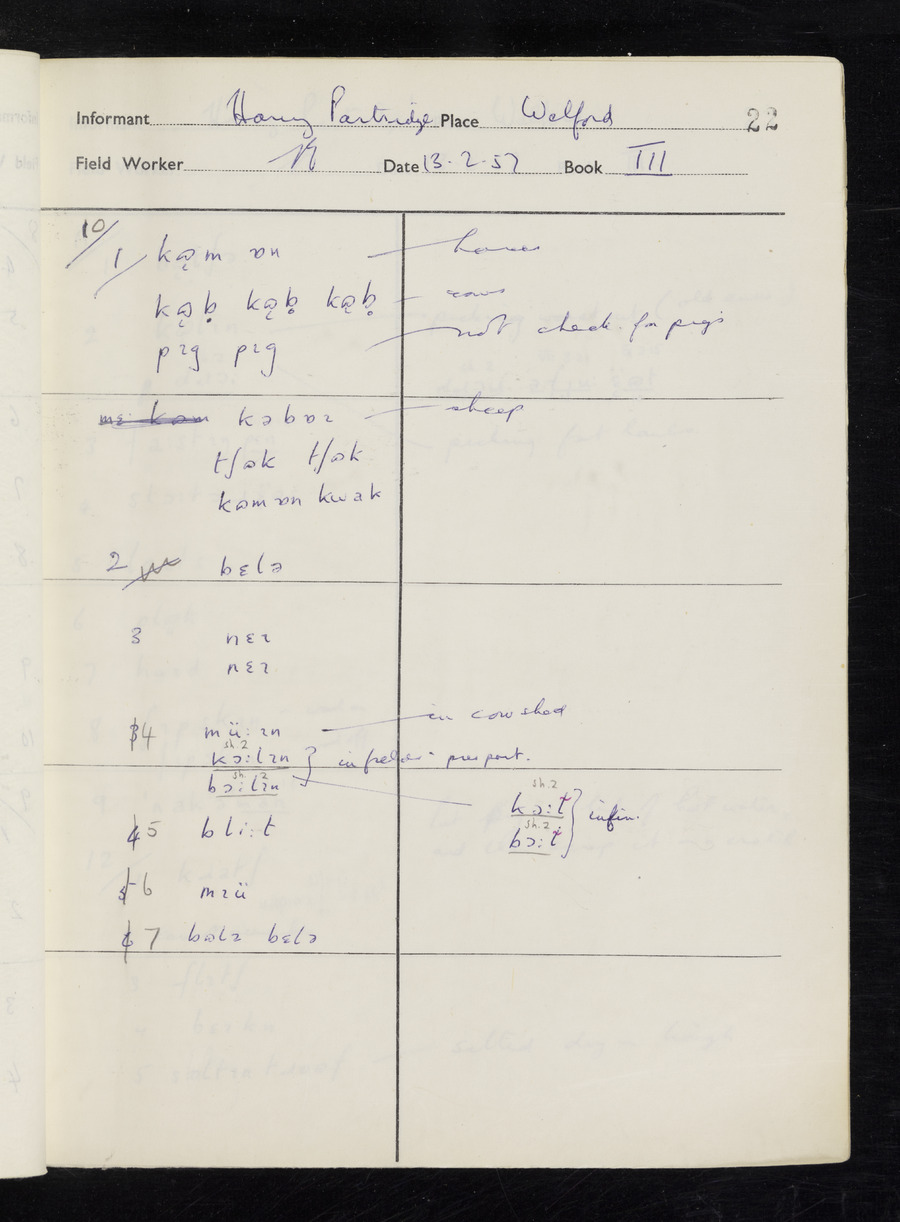 Informant Harry Partridge Place Welford 22
Field Worker Date 13.2.57 Book III
10/
1/ kəm ɒn — horses
kəb̥ kəb̥ kəb̥ — cows
pɪg pɪg — not check. for pigs
kəbɒɪ — sheep
tʃək tʃək
kəmɒn kwɪk
2 bɛlə
3 nɛɪ
nɛɪ
4 mü:ɪn — in cowshed
sh.2
kɔ:lɪn } in field - pres part.
sh. 2
bɔ:lɪn
sh.2
kɔ:ɫ } infin.
sh.2
bɔ:ɫ
5 bli:t
6 mɪü
7 bəlɪ bɛlə